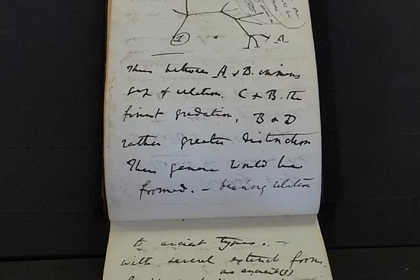 A
Thus between A & B. immense
gap of relation. C & B. the
finest gradation, B & D
rather greater distinction
Thus genera would be
formed. — bearing relation
to ancient types. —
with several extinct forms